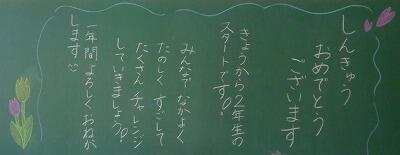 しんきゅう
おめでとう
ございます
きょうから2年生の
スタートです!!
みんなで なかよく
たのしく すごして
たくさん チャレンジ
していきましょう!
一年間 よろしく おねが
します